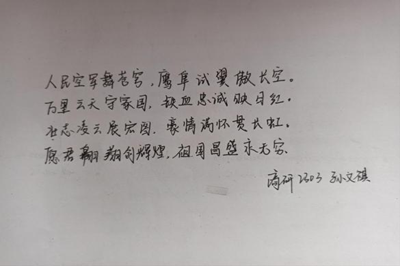 人民空军舞苍穹，鹰隼试翼傲长空。
万里云天守家国，铁血忠诚映日红。
壮志凌云展宏图，豪情满怀贯长虹。
愿君翱翔创辉煌，祖国昌盛永无穷.
高研2303 孙文祺